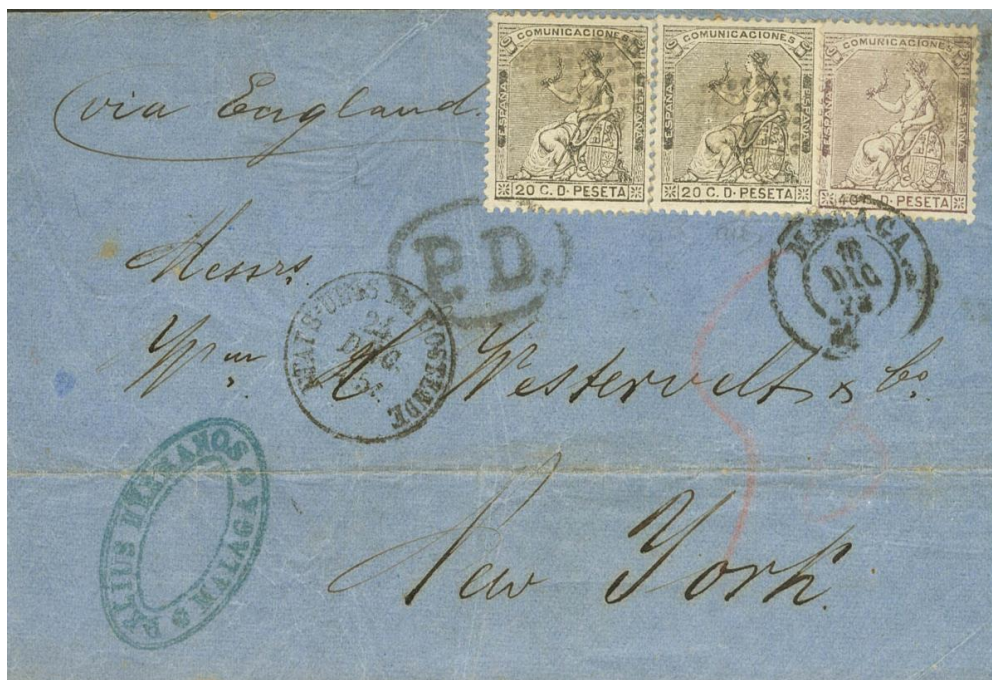 COMUNICACIONES
ESPAÑA
ESPAÑA
20 C. D. PESETA
COMUNICACIONES
ESPAÑA
ESPAÑA
20 C. D. PESETA
COMUNICACIONES
ESPAÑA
ESPAÑA
40 C. D. PESETA
via England.
P.D.
MALAGA
DIC
73
Messrs.
ETATS-UNIS Par OSTENDE
DEC
Wm H Westervelt & Co.
New York.
HERMANOS
MALAGA